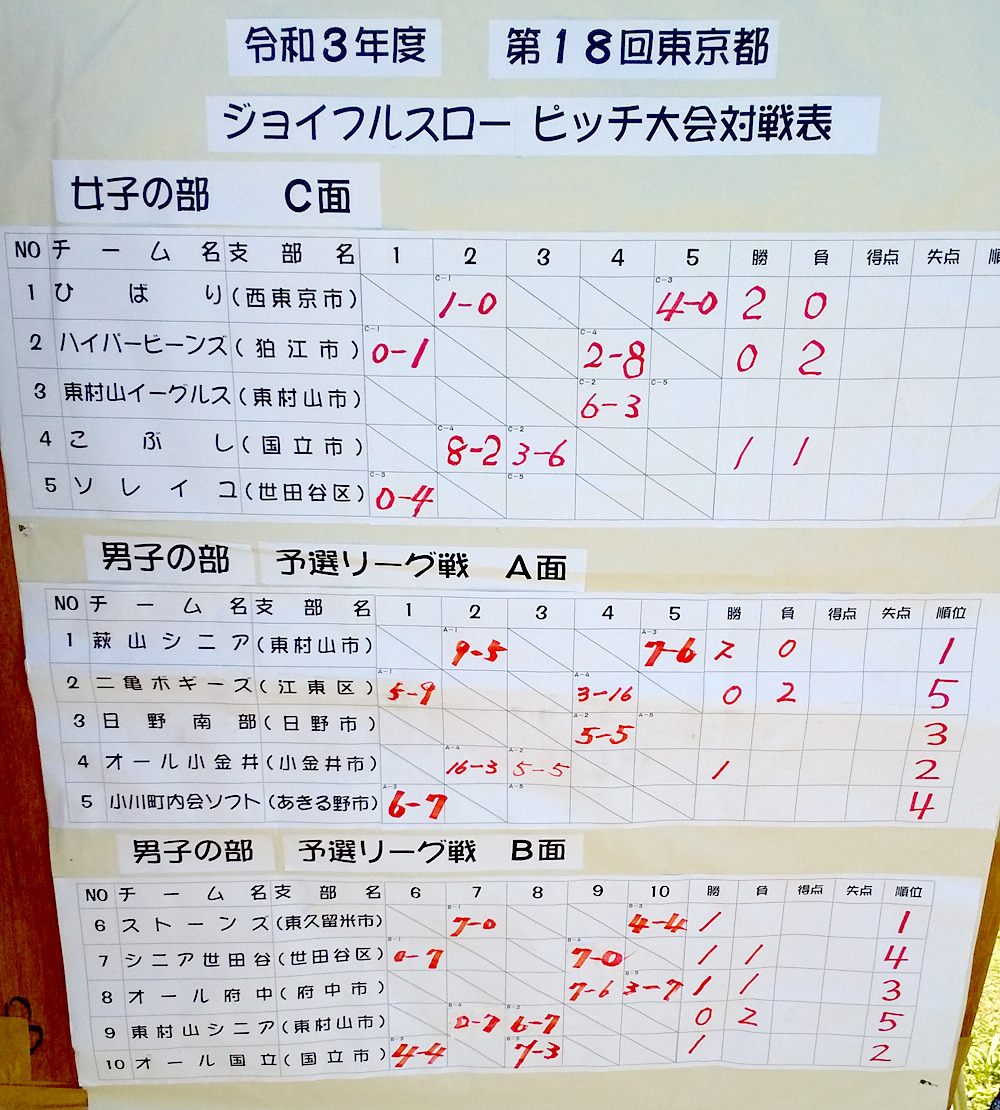 令和3年度 第18回東京都
ジョイフルスロー ピッチ大会対戦表
女子の部 C面
NO チーム名 支部名 1 2 3 4 5 勝 負 得点 失点 順
1 ひばり (西東京市) C-1 1-0 C-3 4-0 2 0
2 ハイパービーンズ (狛江市) C-1 0-1 C-4 2-8 0 2
3 東村山イーグルス (東村山市) C-2 6-3 C-5
4 こぶし (国立市) C-4 8-2 C-2 3-6 1 1
5 ソレイユ (世田谷区) C-3 0-4 C-5
男子の部 予選リーグ戦 A面
NO チーム名 支部名 1 2 3 4 5 勝 負 得点 失点 順位
1 萩山シニア (東村山市) A-1 9-5 A-3 7-6 2 0 1
2 二亀ボギーズ (江東区) A-1 5-9 A-4 3-16 0 2 5
3 日野南部 (日野市) A-2 5-5 A-5 3
4 オール小金井 (小金井市) A-4 16-3 A-2 5-5 1 2
5 小川町内会ソフト (あきる野市) A-3 6-7 A-5 4
男子の部 予選リーグ戦 B面
NO チーム名 支部名 6 7 8 9 10 勝 負 得点 失点 順位
6 ストーンズ (東久留米市) B-1 7-0 B-3 4-4 1 1
7 シニア世田谷 (世田谷区) B-1 0-7 B-4 7-0 1 1 4
8 オール府中 (府中市) 7-6 B-5 3-7 1 1 3
9 東村山シニア (東村山市) B-4 0-7 B-2 6-7 0 2 5
10 オール国立 (国立市) B-3 4-4 B-5 7-3 1 2